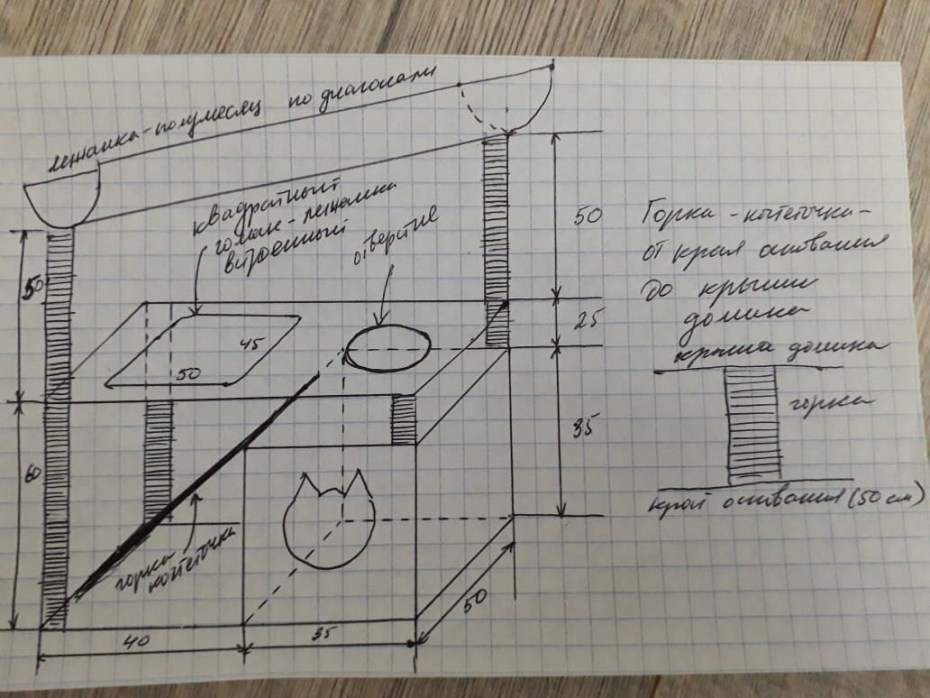 лежанка-полумесяц по диагонали
квадратный
гамак-лежанка
встроенный
отверстие
50
50
25
35
60
45
50
Горка-когтеточка-
от края основания
до крыши
домика
крыша домика
горка
край основания (50 см)
горка
когтеточка
40
35
50